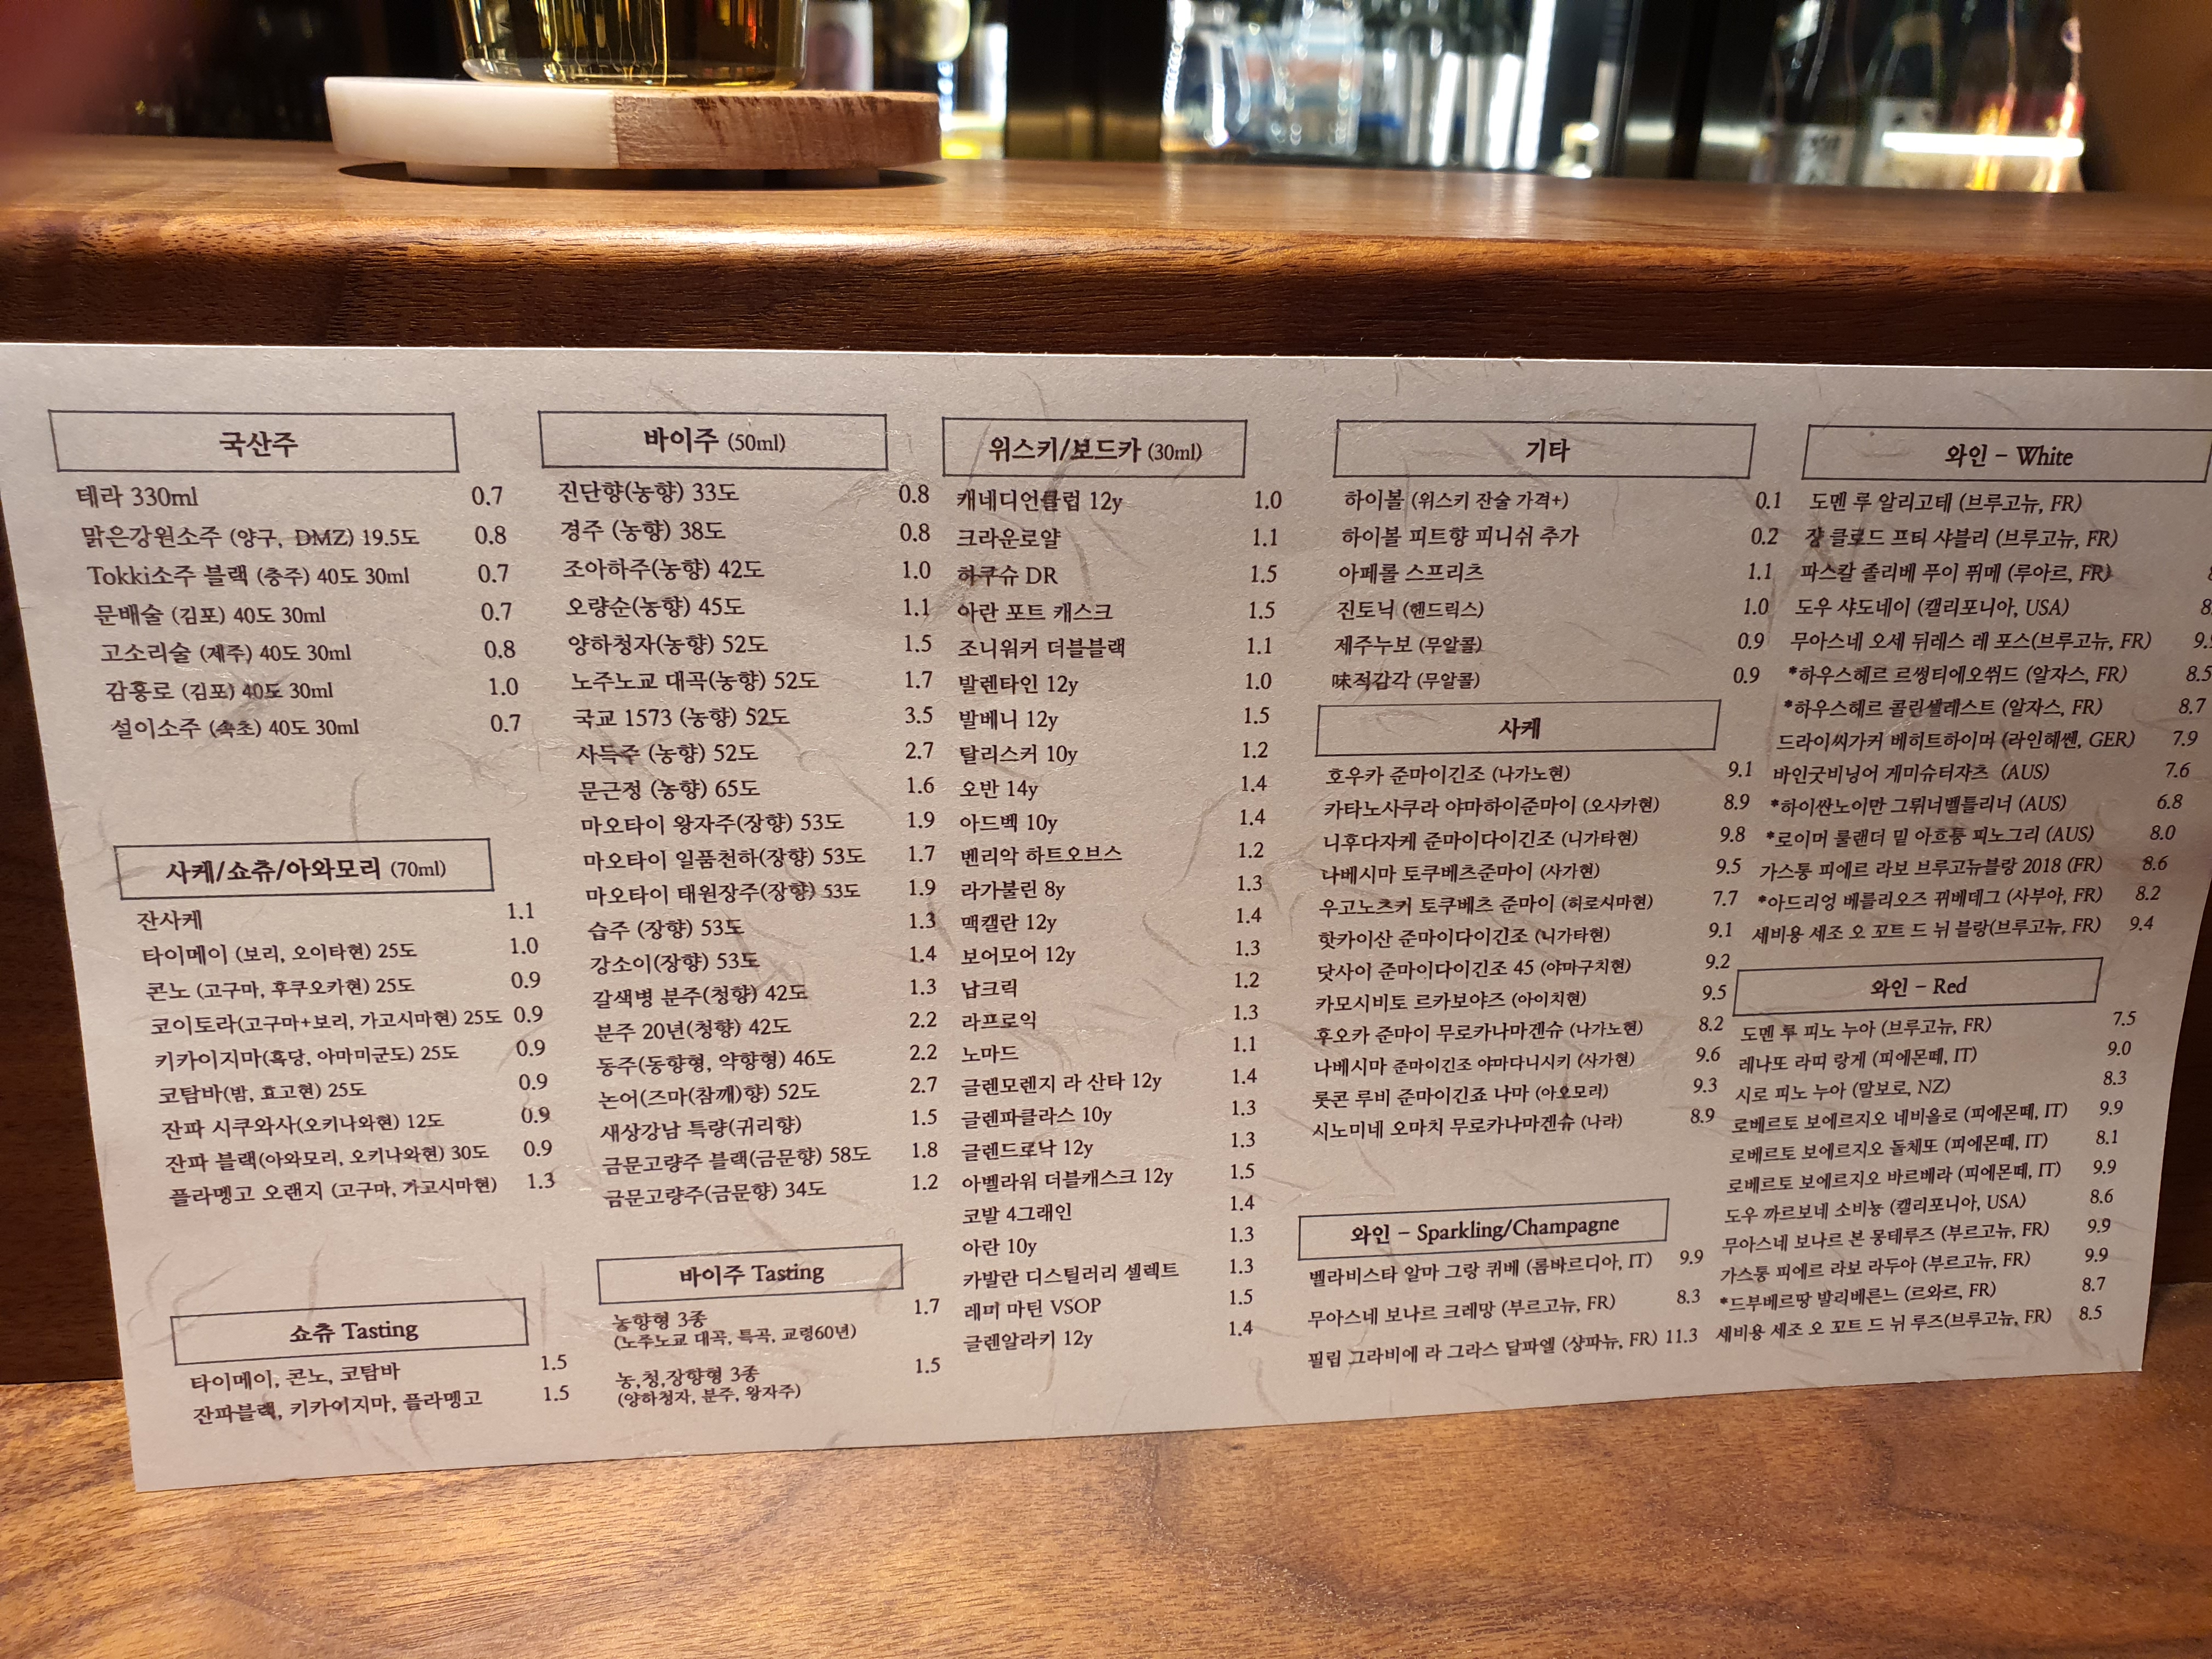 국산주
테라 330ml 0.7
맑은강원소주 (양구, DMZ) 19.5도 0.8
Tokki소주 블랙 (충주) 40도 30ml 0.7
문배술 (김포) 40도 30ml 0.7
고소리술 (제주) 40도 30ml 0.8
감홍로 (김포) 40도 30ml 1.0
설이소주 (속초) 40도 30ml 0.7
사케/쇼츄/아와모리 (70ml)
잔사케 1.1
타이메이 (보리, 오이타현) 25도 1.0
콘노 (고구마, 후쿠오카현) 25도 0.9
코이토라(고구마+보리, 가고시마현) 25도 0.9
키카이지마(흑당, 아마미군도) 25도 0.9
코탐바(밤, 효고현) 25도 0.9
잔파 시쿠와사(오키나와현) 12도 0.9
잔파 블랙(아와모리, 오키나와현) 30도 0.9
플라멩고 오랜지 (고구마, 가고시마현) 1.3
쇼츄 Tasting
타이메이, 콘노, 코탐바 1.5
잔파블랙, 키카이지마, 플라멩고 1.5
바이주 (50ml)
진단향(농향) 33도 0.8
경주 (농향) 38도 0.8
조아하주(농향) 42도 1.0
오량순(농향) 45도 1.1
양하청자(농향) 52도 1.5
노주노교 대곡(농향) 52도 1.7
국교 1573 (농향) 52도 3.5
사득주 (농향) 52도 2.7
문근정 (농향) 65도 1.6
마오타이 왕자주(장향) 53도 1.9
마오타이 일품천하(장향) 53도 1.7
마오타이 태원장주(장향) 53도 1.9
습주 (장향) 53도 1.3
강소이(장향) 53도 1.4
갈색병 분주(청향) 42도 1.3
분주 20년(청향) 42도 2.2
동주(동향형, 약향형) 46도 2.2
논어(즈마(참깨)향) 52도 2.7
새상강남 특량(귀리향) 1.5
금문고량주 블랙(금문향) 58도 1.8
금문고량주(금문향) 34도 1.2
바이주 Tasting
농향형 3종 1.7
(노주노교 대곡, 특곡, 교령60년)
농,청,장향형 3종 1.5
(양하청자, 분주, 왕자주)
위스키/보드카 (30ml)
캐네디언클럽 12y 1.0
크라운로얄 1.1
하쿠슈 DR 1.5
아란 포트 캐스크 1.5
조니워커 더블블랙 1.1
발렌타인 12y 1.0
발베니 12y 1.5
탈리스커 10y 1.2
오반 14y 1.4
아드벡 10y 1.4
벤리악 하트오브스 1.2
라가불린 8y 1.3
맥캘란 12y 1.4
보어모어 12y 1.3
납크릭 1.2
라프로익 1.3
노마드 1.1
글렌모렌지 라 산타 12y 1.4
글렌파클라스 10y 1.3
글렌드로낙 12y 1.3
아벨라워 더블캐스크 12y 1.5
코발 4그래인 1.4
아란 10y 1.3
카발란 디스틸러리 셀렉트 1.3
레미 마틴 VSOP 1.5
글렌알라키 12y 1.4
기타
하이볼 (위스키 잔술 가격+) 0.1
하이볼 피트향 피니쉬 추가 0.2
아페롤 스프리츠 1.1
진토닉 (헨드릭스) 1.0
제주누보 (무알콜) 0.9
味적감각 (무알콜) 0.9
사케
호우카 준마이긴조 (나가노현) 9.1
카타노사쿠라 야마하이준마이 (오사카현) 8.9
니후다자케 준마이다이긴조 (니가타현) 9.8
나베시마 토쿠베츠준마이 (사가현) 9.5
우고노츠키 토쿠베츠 준마이 (히로시마현) 7.7
핫카이산 준마이다이긴조 (니가타현) 9.1
닷사이 준마이다이긴조 45 (야마구치현) 9.2
카모시비토 르카보야즈 (아이치현) 9.5
후오카 준마이 무로카나마겐슈 (나가노현) 8.2
나베시마 준마이긴조 야마다니시키 (사가현) 9.6
롯콘 루비 준마이긴죠 나마 (아오모리) 9.3
시노미네 오마치 무로카나마겐슈 (나라) 8.9
와인 - Sparkling/Champagne
벨라비스타 알마 그랑 퀴베 (롬바르디아, IT) 9.9
무아스네 보나르 크레망 (부르고뉴, FR) 8.3
필립 그라비에 라 그라스 달파엘 (샹파뉴, FR) 11.3
와인 - White
도멘 루 알리고테 (브루고뉴, FR)
쟝 클로드 프티 샤블리 (브루고뉴, FR)
파스칼 졸리베 푸이 퓌메 (루아르, FR)
도우 샤도네이 (캘리포니아, USA)
무아스네 오세 뒤레스 레 포스(브루고뉴, FR)
*하우스헤르 르썽티에오쒸드 (알자스, FR) 8.5
*하우스헤르 콜린셀레스트 (알자스, FR) 8.7
드라이씨가커 베히트하이머 (라인헤쎈, GER) 7.9
바인굿비닝어 게미슈터쟈츠 (AUS) 7.6
*하이싼노이만 그뤼너벨틀리너 (AUS) 6.8
*로이머 룰랜더 밑 아흐퉁 피노그리 (AUS) 8.0
가스통 피에르 라보 브루고뉴블랑 2018 (FR) 8.6
*아드리엉 베를리오즈 뀌베데그 (사부아, FR) 8.2
세비용 세조 오 꼬트 드 뉘 블랑(브루고뉴, FR) 9.4
와인 - Red
도멘 루 피노 누아 (브루고뉴, FR) 7.5
레나또 라띠 랑게 (피에몬떼, IT) 9.0
시로 피노 누아 (말보로, NZ) 8.3
로베르토 보에르지오 네비올로 (피에몬떼, IT) 9.9
로베르토 보에르지오 돌체또 (피에몬떼, IT) 8.1
로베르토 보에르지오 바르베라 (피에몬떼, IT) 9.9
도우 까르보네 소비뇽 (캘리포니아, USA) 8.6
무아스네 보나르 본 몽테루즈 (부르고뉴, FR) 9.9
가스통 피에르 라보 라두아 (부르고뉴, FR) 9.9
*드부베르땅 발리베른느 (르와르, FR) 8.7
세비용 세조 오 꼬트 드 뉘 루즈(브루고뉴, FR) 8.5